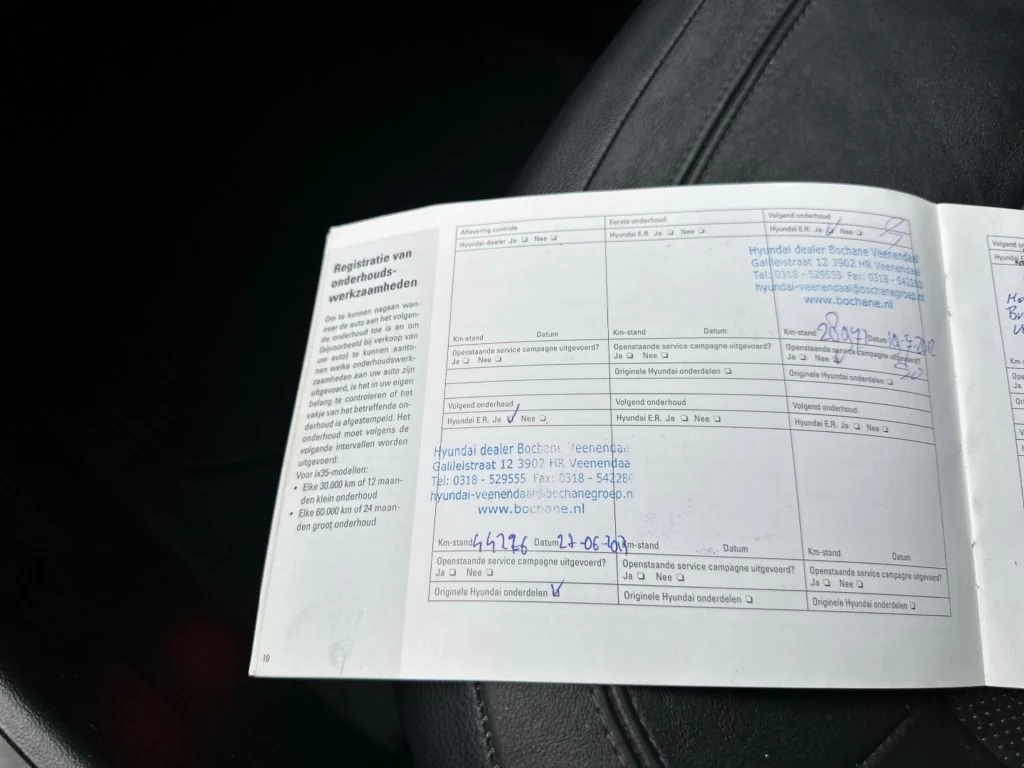 Registratie van
onderhouds-
werkzaamheden
Om te kunnen nagaan wan-
neer de auto aan het volgen-
de onderhoud toe is en om
(bijvoorbeeld bij verkoop van
uw auto) te kunnen aanto-
nen welke onderhoudswerk-
zaamheden aan uw auto zijn
uitgevoerd, is het in uw eigen
belang te controleren of het
vakje van het betreffende on-
derhoud is afgestempeld. Het
onderhoud moet volgens de
volgende intervallen worden
uitgevoerd:
Voor ix35-modellen:
• Elke 30.000 km of 12 maan-
den klein onderhoud
• Elke 60.000 km of 24 maan-
den groot onderhoud
10
Aflevering controle
Hyundai dealer Ja ❑ Nee ❑
Km-stand Datum
Openstaande service campagne uitgevoerd?
Ja ❑ Nee ❑
Eerste onderhoud
Hyundai E.R. Ja ❑ Nee ❑
Km-stand Datum
Openstaande service campagne uitgevoerd?
Ja ❑ Nee ❑
Originele Hyundai onderdelen ❑
Volgend onderhoud
Hyundai E.R. Ja Nee ❑
Hyundai dealer Bochane Veenendaal
Galileistraat 12 3902 HR Veenendaal
Tel: 0318 - 529555 Fax: 0318 - 542280
hyundai-veenendaal@bochanegroep.n
www.bochane.nl
Km-stand Datum
Openstaande service campagne uitgevoerd?
Ja ❑ Nee
Originele Hyundai onderdelen ❑
Volgend onderhoud
Hyundai E.R. Ja Nee ❑
Hyundai dealer Bochane Veenendaa
Galileistraat 12 3902 HR Veenendaa
Tel: 0318 - 529555 Fax: 0318 - 54228
hyundai-veenendaal@bochanegroep.n
www.bochane.nl
Km-stand 44276 Datum 27-06
Openstaande service campagne uitgevoerd?
Ja ❑ Nee ❑
Originele Hyundai onderdelen
Volgend onderhoud
Hyundai E.R. Ja ❑ Nee ❑
Km-stand Datum
Openstaande service campagne uitgevoerd?
Ja ❑ Nee ❑
Originele Hyundai onderdelen ❑
Volgend onderhoud
Hyundai E.R. Ja ❑ Nee ❑
Km-stand Datum
Openstaande service campagne uitgevoerd?
Ja ❑ Nee ❑
Originele Hyundai onderdelen ❑